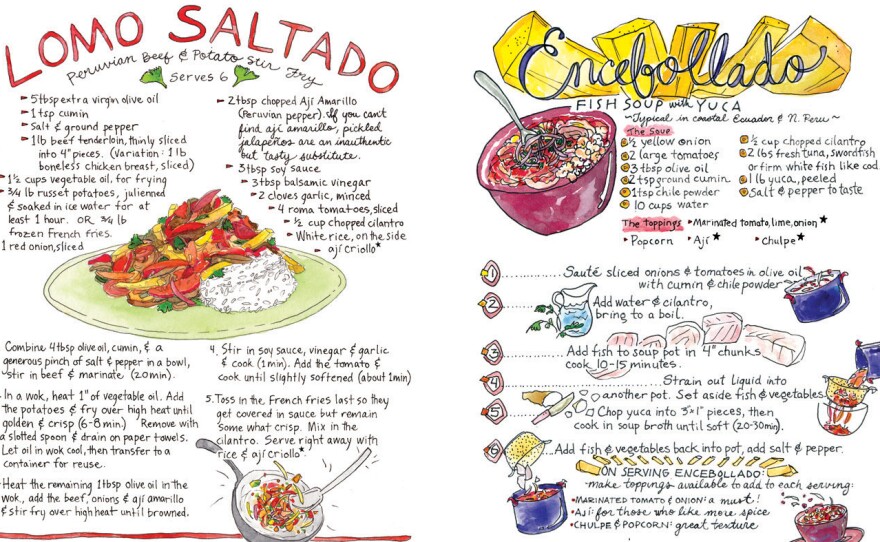 LOMO SALTADO
Peruvian Beef & Potato Stir Fry
Serves 6
5tbsp extra virgin olive oil
1 tsp cumin
Salt & ground pepper
1 lb beef tenderloin, thinly sliced
into 4" pieces. (Variation: 1 lb
boneless chicken breast, sliced)
1½ cups vegetable oil for frying
¾ lb russet potatoes, julienned
& soaked in ice water for at
least 1 hour. OR ¾ lb
frozen French fries.
1 red onion, sliced
2tbsp chopped Ají Amarillo
(Peruvian pepper). If you can't
find ají amarillo, pickled
jalapeños are an inauthentic
but tasty substitute.
3tbsp soy sauce
3tbsp balsamic vinegar
2 cloves garlic, minced
4 roma tomatoes, sliced
½ cup chopped cilantro
White rice, on the side
ají criollo*
Combine 4tbsp olive oil, cumin, & a
generous pinch of salt & pepper in a bowl,
stir in beef & marinate (20min).
In a wok, heat 1" of vegetable oil. Add
the potatoes & fry over high heat until
golden & crisp (6-8 min) Remove with
a slotted spoon & drain on paper towels.
Let oil in wok cool, then transfer to a
container for reuse.
Heat the remaining 1tbsp olive oil in the
wok, add the beef, onions & ají amarillo
& stir fry over high heat until browned.
4. Stir in soy sauce, vinegar & garlic
& cook (1min). Add the tomato &
cook until slightly softened (about 1min)
5. Toss in the French fries last so they
get covered in sauce but remain
some what crisp. Mix in the
cilantro. Serve right away with
rice & ají criollo*
Encebollado
FISH SOUP with YUCA
~Typical in coastal Ecuador & N. Peru~
The Soup
½ yellow onion
2 large tomatoes
3 tbsp olive oil
2 tsp ground cumin
1 tsp chile powder
10 cups water
½ cup chopped cilantro
2 lbs fresh tuna, swordfish
or firm white fish like cod
1 lb yuca, peeled
Salt & pepper to taste
The toppings • Marinated tomato, lime, onion★
• Popcorn • Ají★ • Chulpe★
1 Sauté sliced onions & tomatoes in olive oil
with cumin & chile powder
2 Add water & cilantro,
bring to a boil.
3 Add fish to soup pot in 4" chunks
cook 10-15 minutes.
4 Strain out liquid into
another pot. Set aside fish & vegetables
5 Chop yuca into 3"x1" pieces, then
cook in soup broth until soft (20-30min).
6 Add fish & vegetables back into pot, add salt & pepper.
ON SERVING ENCEBOLLADO:
make toppings available to add to each serving:
• MARINATED TOMATO & ONION: a must!
• AJí: for those who like more spice
• CHULPE & POPCORN: great texture